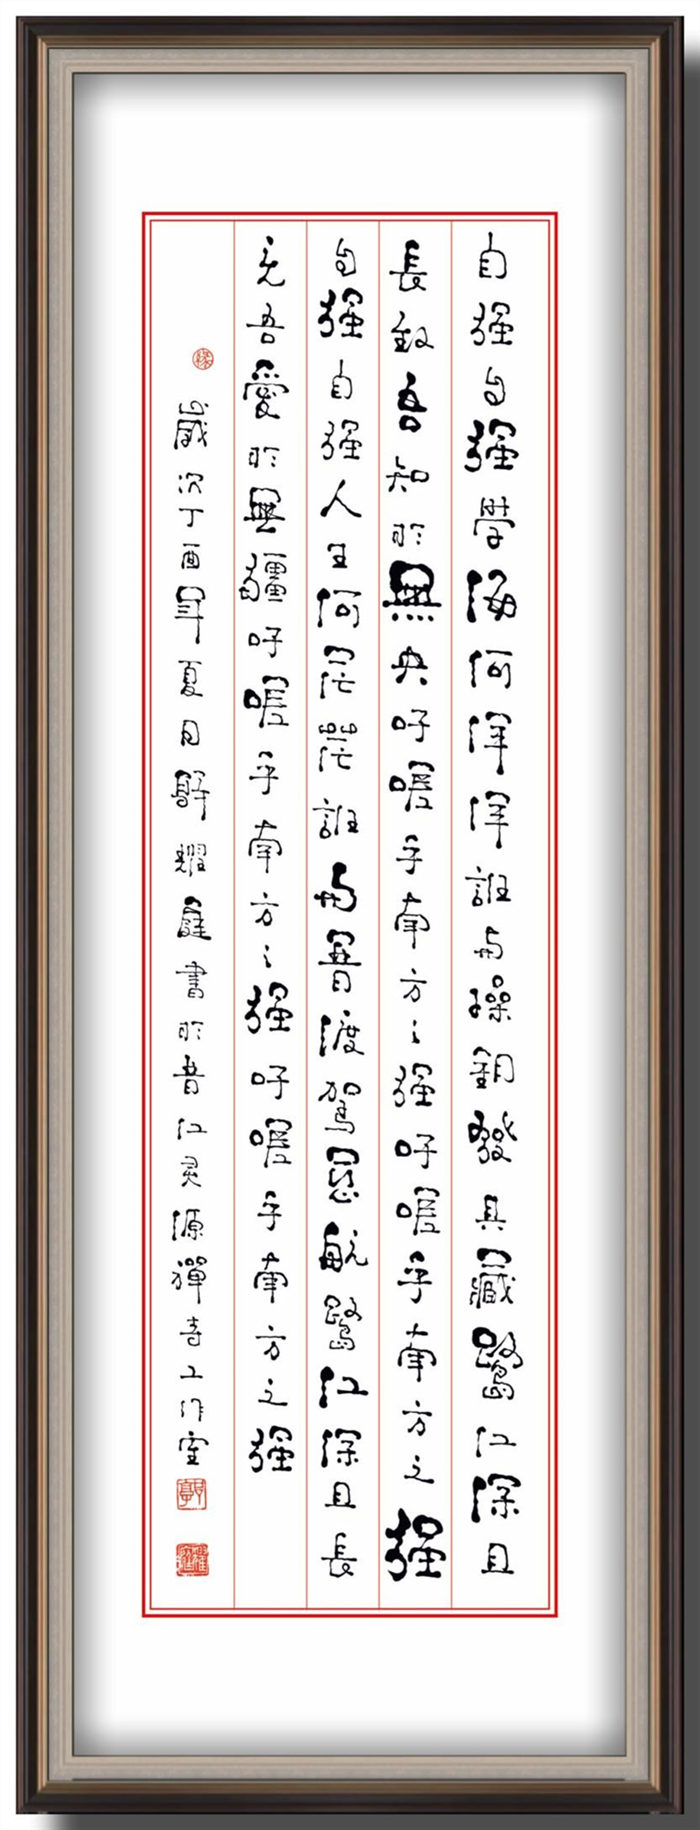 自强自强學海何洋洋誰与操鈅發其藏鷺江深且
長致吾知於無央吁嗟乎南方之强吁嗟乎南方之强
自强自强人生何茫茫誰与普渡駕慈航鷺江深且長
充吾愛於無疆吁嗟乎南方之强吁嗟乎南方之强
歲次丁酉年夏月耀庭書於晋江灵源禪寺工作室